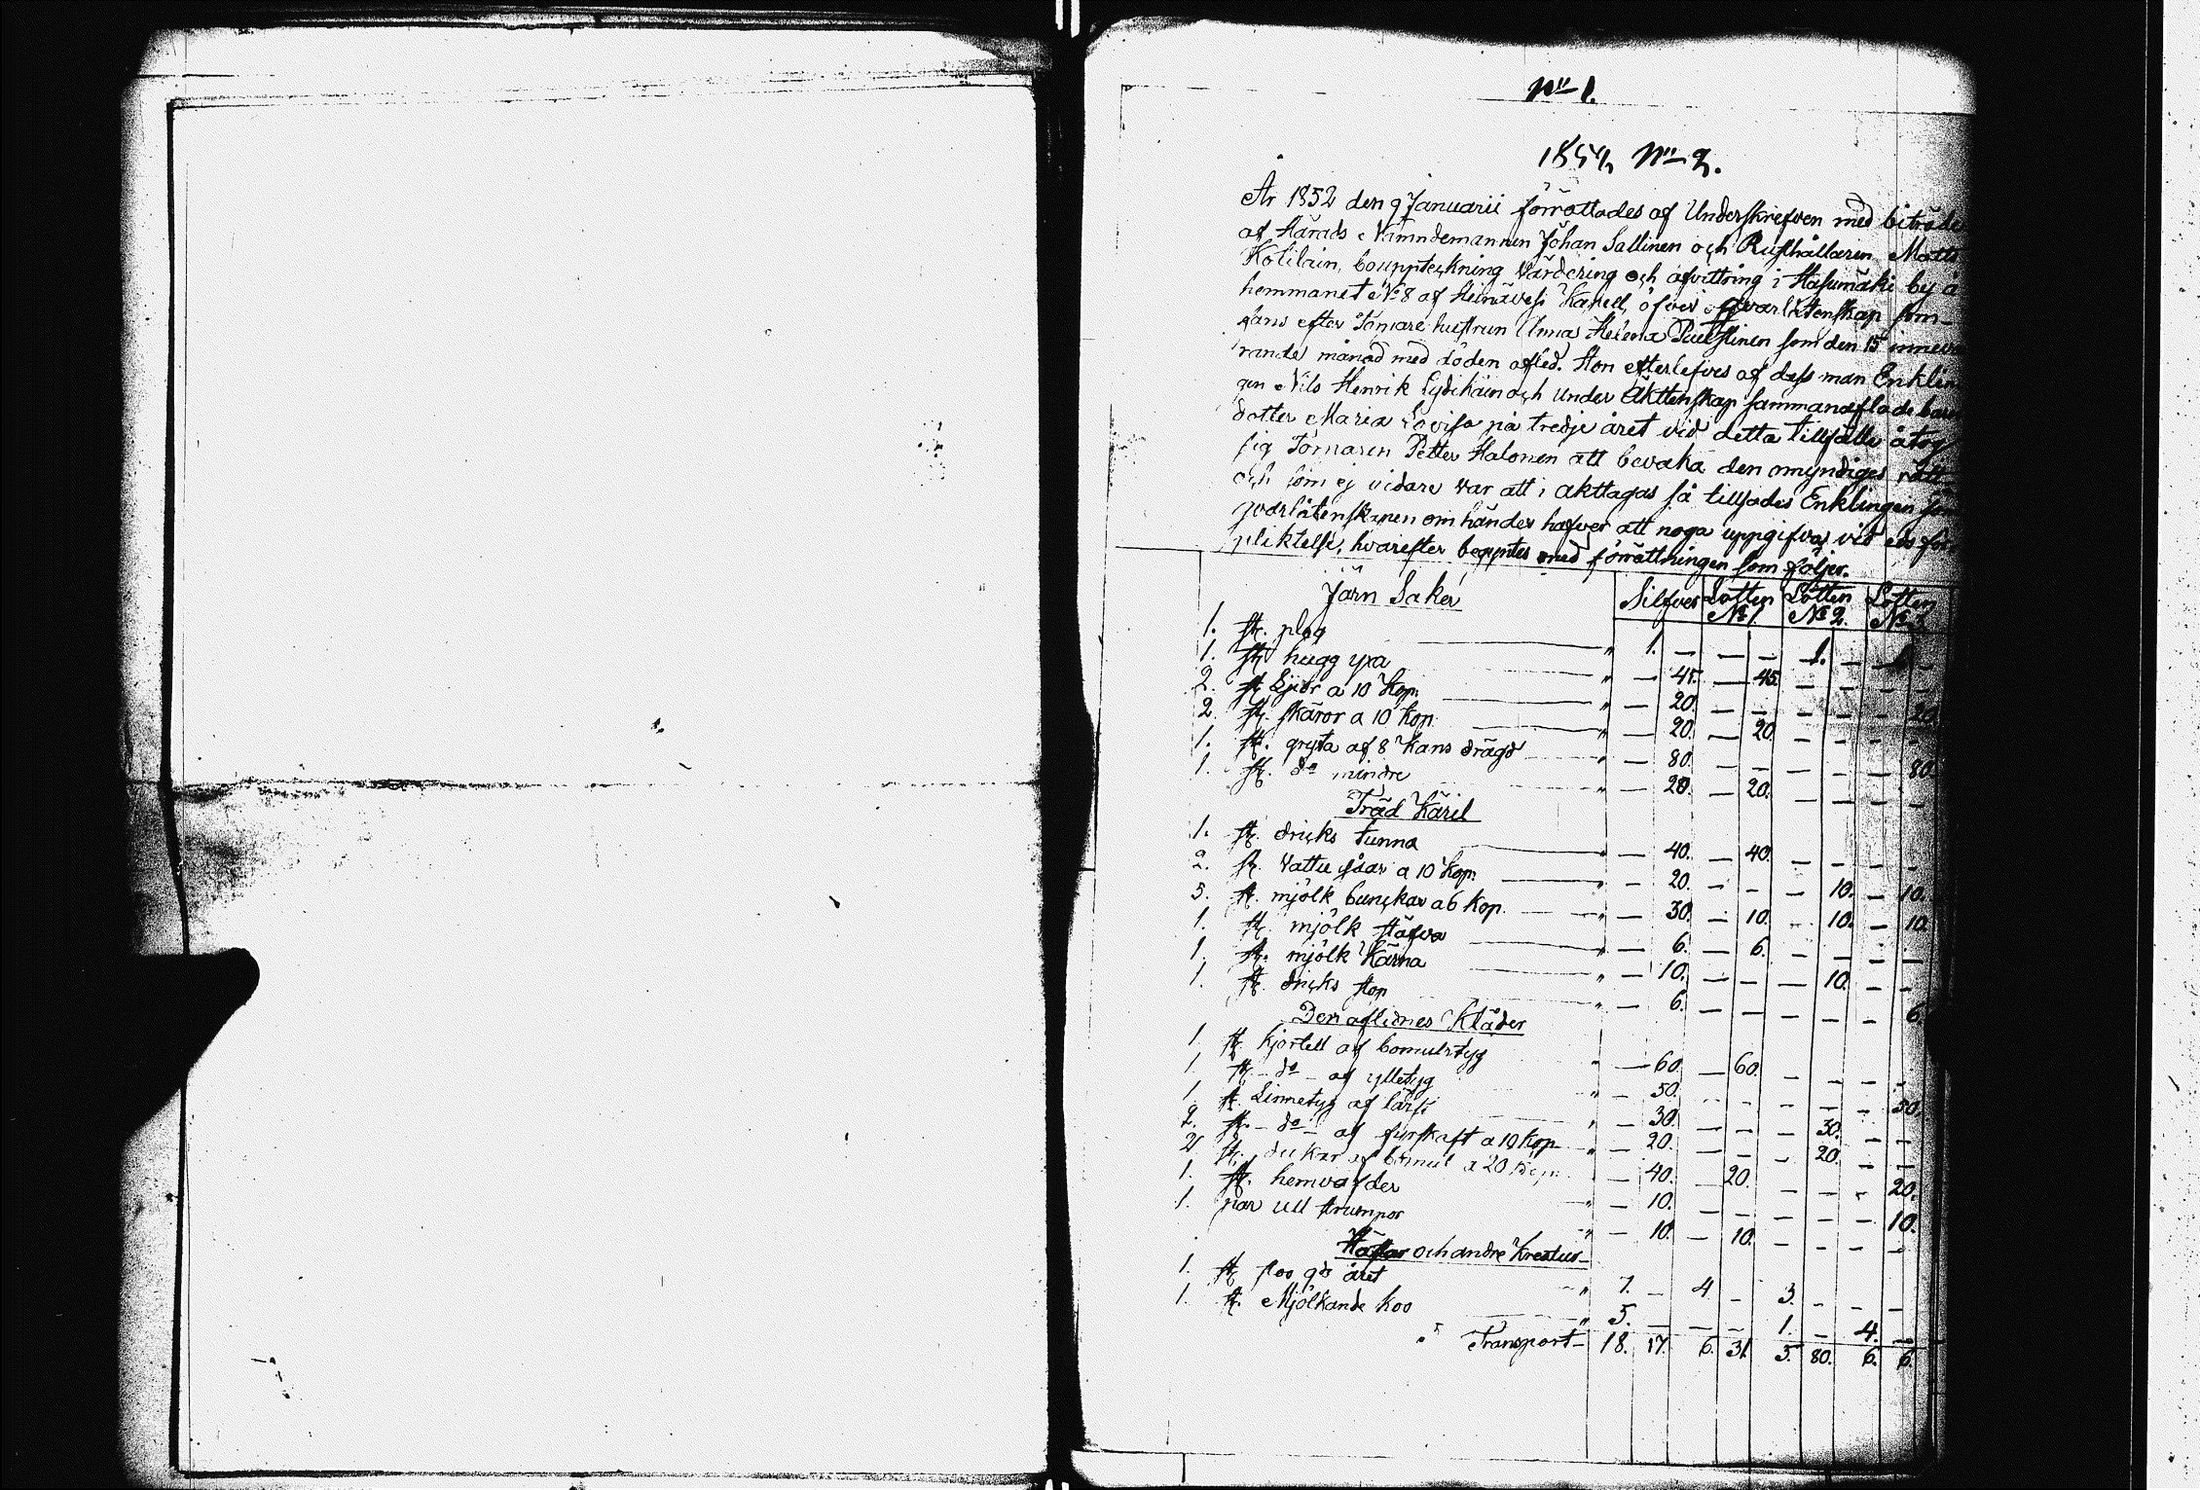 No 1.
1852 No 2.
År 1852 den 9 Januarii förrättades af Underskrefven med biträde
af Härads Nämndemannen Johan Sallinen och Rusthållaren Matts
Kolilain, bouppteckning Värdering och afvittring i Hasumäki by å
hemmanet No 8 af Heinävesi Kapell, öfver qvarlåtenskap som
fans efter Tornare hustrun Anna Helena Puustinen som den 15 inneva
rande månad med döden afled. Hon efterlefves af dess man Enklin
gen Nils Henrik Lydikäin och under Äkttenskap sammanaflade barn
dotter Maria Lovisa på tredje året vid detta tillfälle åtog
sig Tornaren Petter Halonen att bevaka den omyndiges rätt
och som ej vidare var att i akttagas så tillsades Enklingen som
qvarlåtenskapen om händer hafver att noga uppgifva vid eds för
pliktelse, hvarefter begyntes med förrättningen som följer.
Järn Saker Silfver Lotten No 1. Lotten No 2. Lotten No 3.
1. st. plog " 1. — — — 1. — — —
1. st hugg yxa " — 45. — 45. — — — —
2. st Ljior a 10 Kop. " — 20. — — — — — 20.
2. st. skäror a 10 Kop. " — 20. — 20. — — — —
1. st. gryta af 8 Kans drägd " — 80. — — — — — 80.
1. st. do mindre " — 20. — 20. — — — —
Träd Käril
1. st. dricks tunna " — 40. — 40. — — — —
2. st. Vattu såar a 10 Kop. " — 20. — — — 10. — 10.
5. st. mjölk bunckar a 6 Kop. " — 30. — 10. — 10. — 10.
1. st. mjölk stäfva " — 6. — 6. — — — —
1. st. mjölk Kärna " — 10. — — — 10. — —
1. st. dricks stop " — 6. — — — — — 6.
Den aflidnes Kläder
1. st. Kjortell af bomulstyg " — 60. — 60. — — — —
1. st. — do — af ylletyg " — 50. — — — — — 50.
1. st. Linnetyg af lärft " — 30. — — — 30. — —
2. st. — do — af fyrskaft a 10 Kop " — 20. — — — 20. — —
2. st. dukar af bomul a 20 Kop. " — 40. — 20. — — — 20.
1. st. — 10. — — — — — 10.
1. par ull strumpor " — 10. — 10. — — — —
Hästar och andre Kreatur
1. st. stoo 9de året " 7. — 4 — 3. — — —
1. st. Mjölkande koo " 5. — — — 1. — 4. —
Transport — 18. 17. 6. 31. 5. 80. 6. 6.